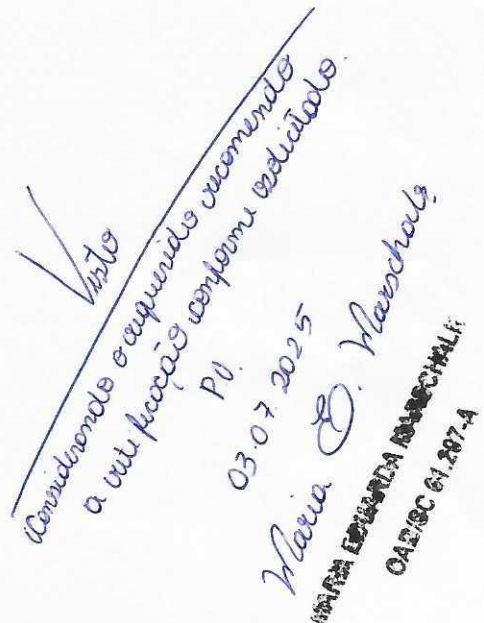 Visto
Considerando o requerido recomendo
a retificação conforme solicitado.
PV.
03.07.2025
Maria E. Marschalk
MARIA EDUARDA MARSCHALK
OAB/SC 61.297-A